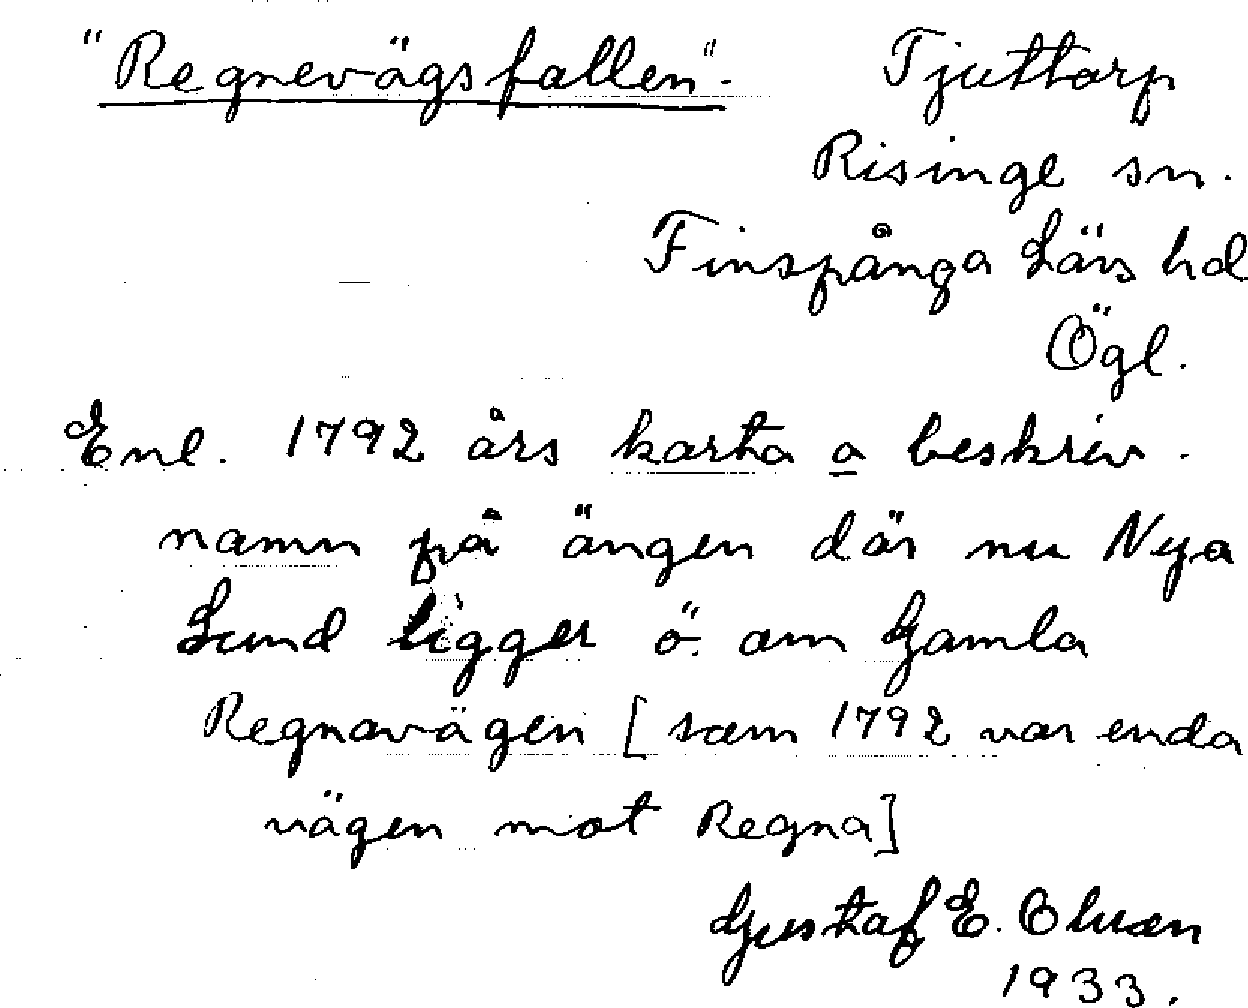 "Regnevägsfallen". Tjuttorp
Risinge sn.
Finspånga Läns hd
Ögl.
Enl. 1792 års karta o beskriv.
namn på ängen där nu Nya
Lund ligger ö. om Gamla
Regnavägen [som 1792 var enda
vägen mot Regna]
Gustaf E. Olson
1933.